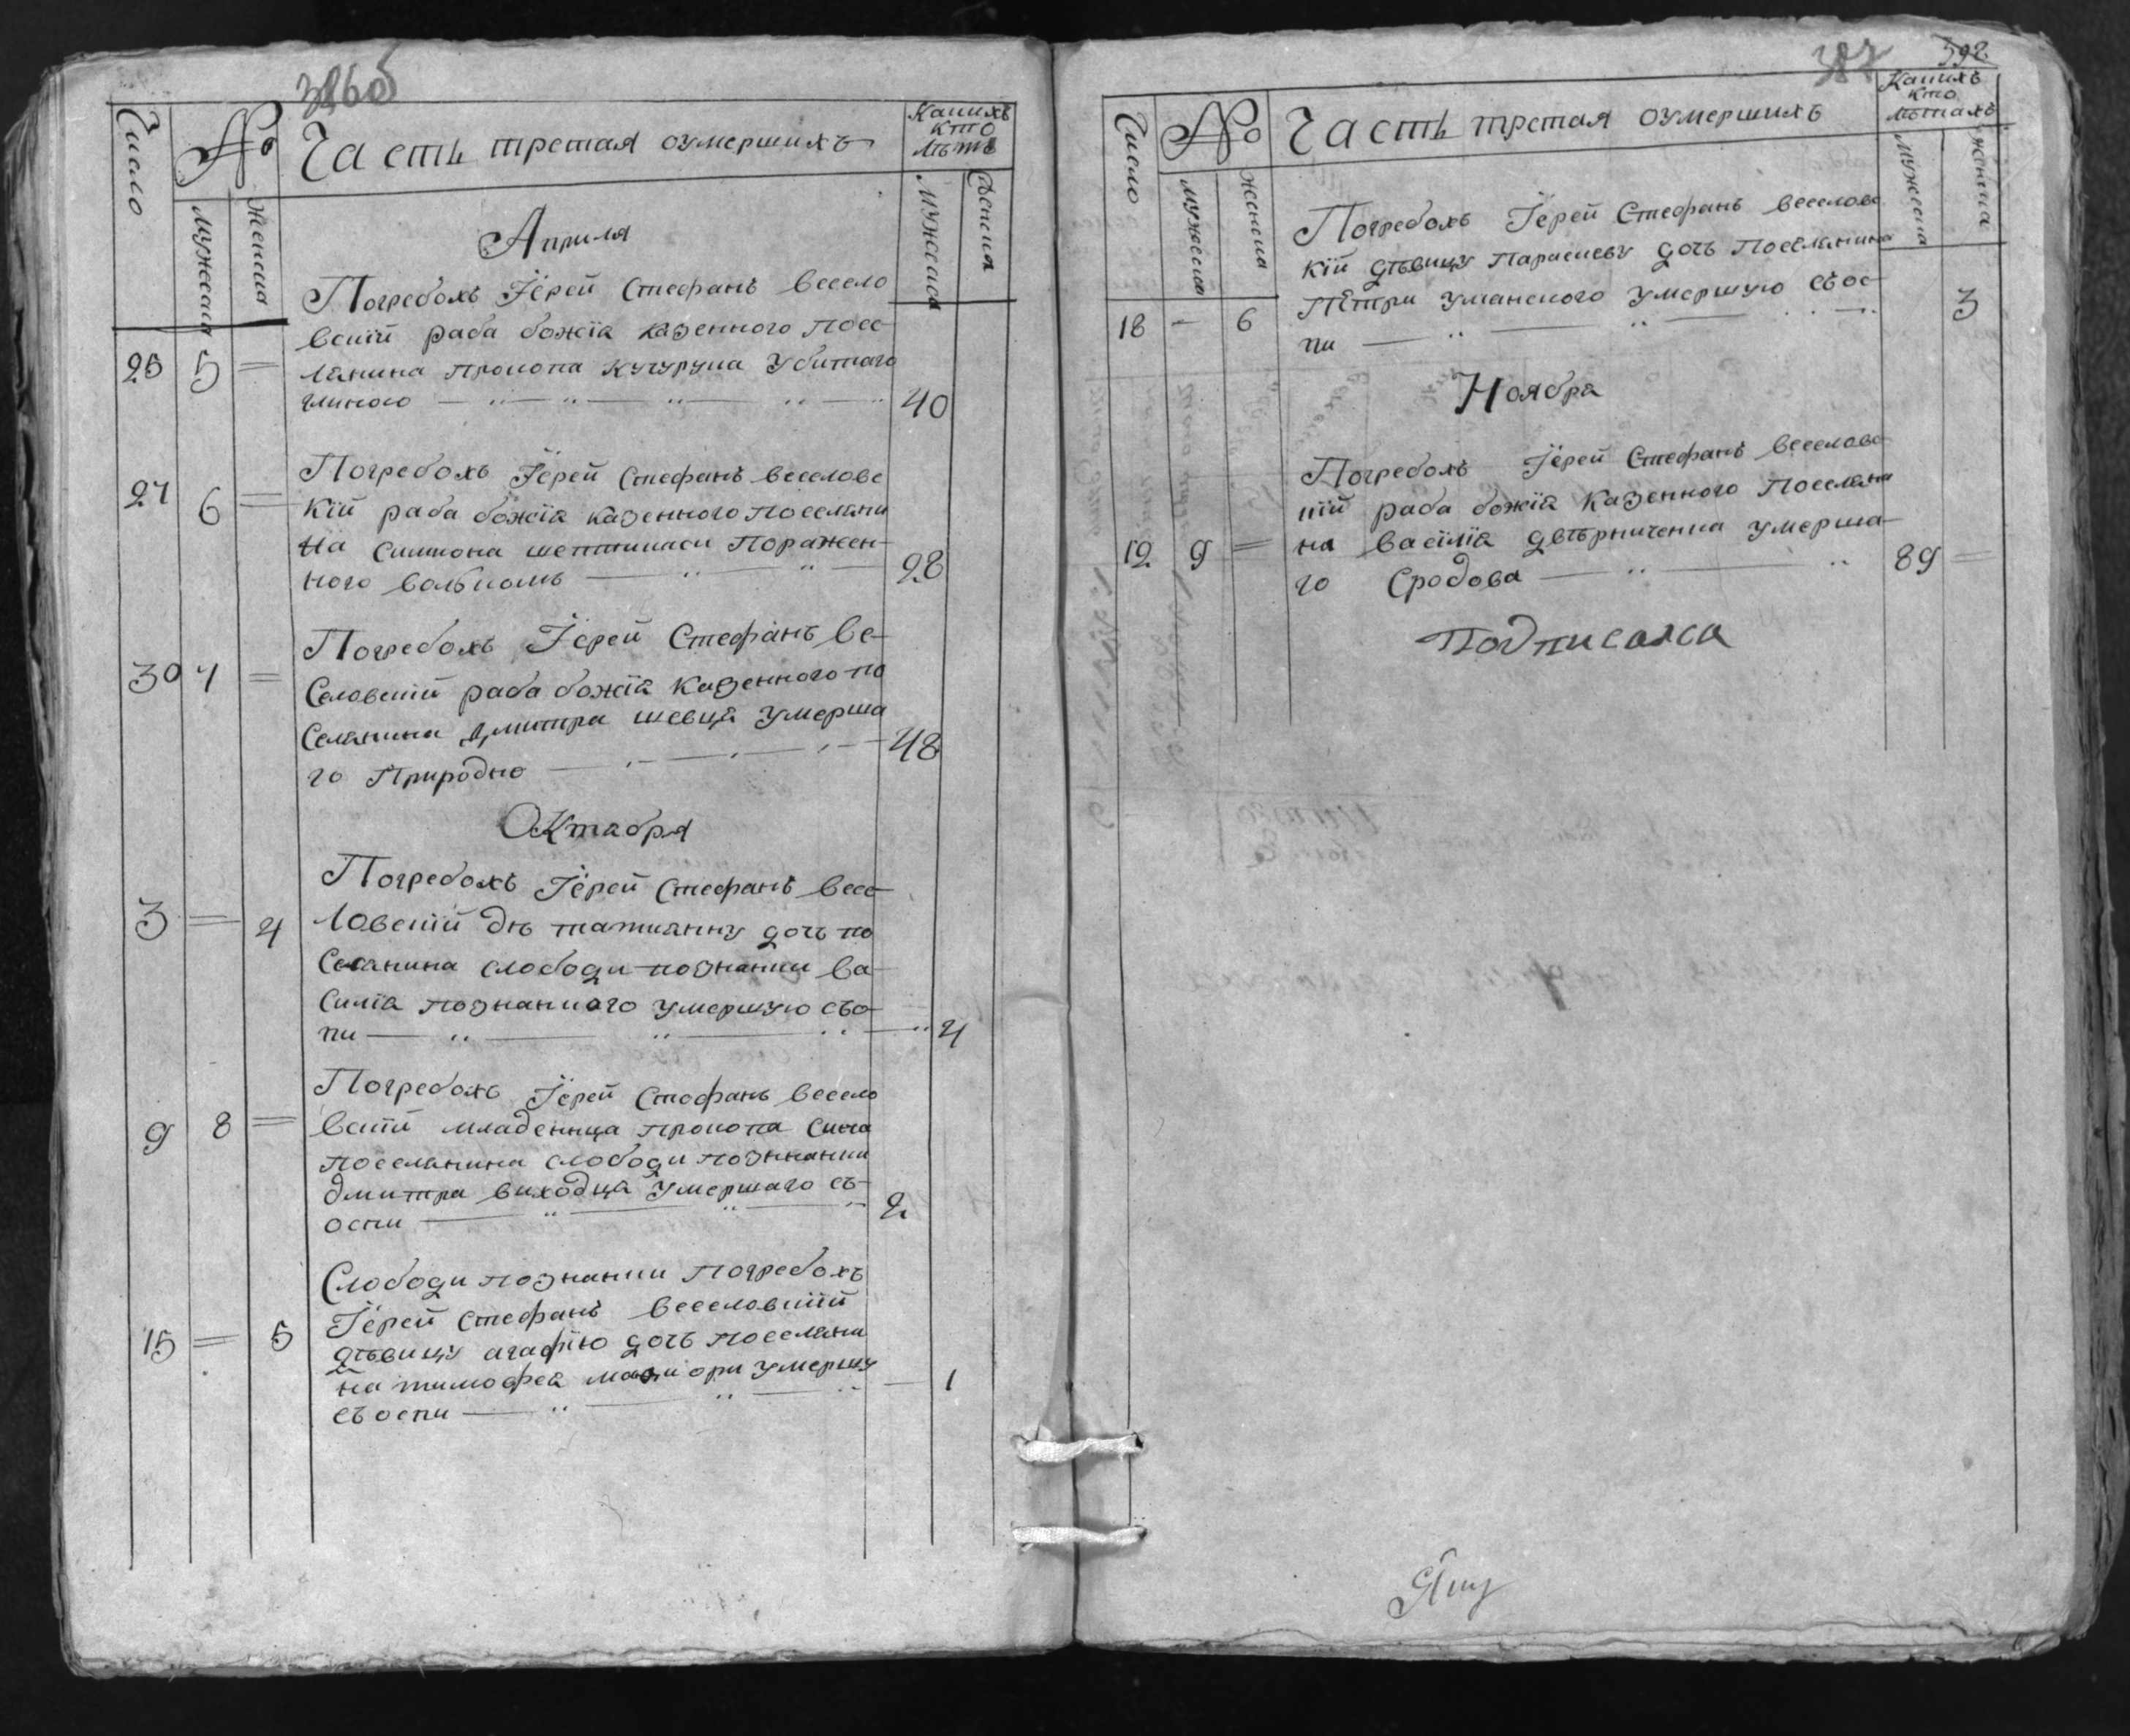 386об
Число
№
Часть третая оумершихъ
Какихъ
кто
лѣтъ
мужеска
женска
мужеска
женска
Априля
Погребохъ Іерей Стефанъ Весело
вскїй раба божїя казенного посе-
25 5 =
лянина Прокопа Кучурука Убитаго
глиною 40
Погребохъ Іерей Стефанъ Веселовс
27 6 =
кїй раба божїя казенного поселяни
на Симиона Поражен-
ного 28
Погребохъ Іерей Стефанъ Ве-
30 7 =
селовскїй раба божїя казенного по
селянина Дмитра Шевця Умерша
го Природно 48
Октабря
Погребохъ Іерей Стефанъ Весе-
3 = 4
ловскїй дѣ татиянну дочъ по
селянина слободи Познанки Ва-
силїя Познанкого Умершую съо-
пи 4
Погребохъ Іерей Стефанъ Весело
9 8 =
вскїй младенца Прокопа сина
поселянина слободи Познанки
Дмитра Виходця Умершаго съ-
оспи 2
Слободи Познанки Погребохъ
Іерей Стефанъ Веселовскїй
15 = 5
дѣвицу агафїю дочъ поселяни
на тимофея Умершу
съоспи 1
387 392
Число
№
Часть третая оумершихъ
Какихъ
кто
лѣтахъ
мужеска
женска
мужеска
женска
Погребохъ Іерей Стефанъ Веселовс
кїй дѣвицу Параскеву дочъ Поселянина
18 - 6
Петра Уманского Умершую съос-
пи 3
Ноябра
Погребохъ Іерей Стефанъ Веселовс
кїй раба божїя казенного Поселяни
12 9 =
на Василїя Двѣрниченка Умерша-
го Сродова 89 =
Подписался